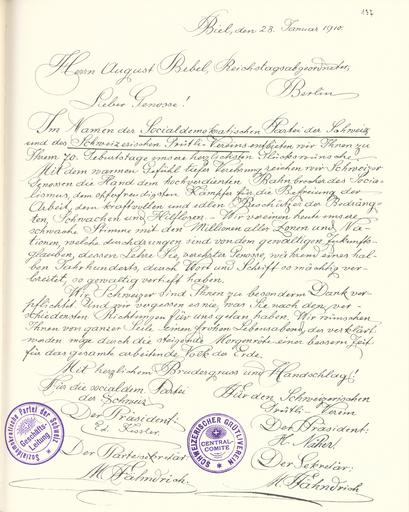 137
Biel, den 28. Januar 1910.
Herrn August Bebel, Reichstagsabgeordneter,
Berlin
Lieber Genosse!
Im Namen der Socialdemokratischen Partei der Schweiz
und des Schweizerischen Grütli-Vereins entbieten wir Ihnen zu
Ihrem 70. Geburtstage unsere herzlichsten Glückswünsche.
Mit dem warmen Gefühl tiefer Verehrung reichen wir Schweizer
Genossen die Hand dem hochverdienten Bahnbrecher des Socia-
lismus, dem opferfreudigsten Kämpfer für die Befreiung der
Arbeit, dem kraftvollen und edlen Beschützer der Bedräng-
ten, Schwachen und Hilflosen. Wir vereinen heute unsere
schwache Stimme mit den Millionen aller Zonen und Na-
tionen, welche durchdrungen sind von dem gewaltigen Zukunfts-
glauben, dessen Lehre Sie, verehrter Genosse, während eines hal-
ben Jahrhunderts, durch Wort und Schrift so mächtig ver-
breitet, so gewaltig vertieft haben.
Wir Schweizer sind Ihnen zu besonderm Dank ver-
pflichtet. Und wir vergessen es nie, was Sie nach den ver-
schiedensten Richtungen für uns getan haben. Wir wünschen
Ihnen von ganzer Seele einen frohen Lebensabend, der verklärt
werden möge durch die steigende Morgenröte einer bessern Zeit
für das gesamte arbeitende Volk der Erde.
Mit herzlichem Brudergruss und Handschlag!
Für die socialdem. Partei
der Schweiz
Der Präsident:
Ed. Kessler.
Der Parteisekretär:
M. Fähndrich.
Für den Schweizerischen
Grütli-Verein
Der Präsident:
H. Näher!
Der Sekretär:
M. Fähndrich
Sozialdemokratische Partei der Schweiz
Geschäfts-
Leitung
SCHWEIZERISCHER GRÜTLIVEREIN
CENTRAL-
COMITÉ